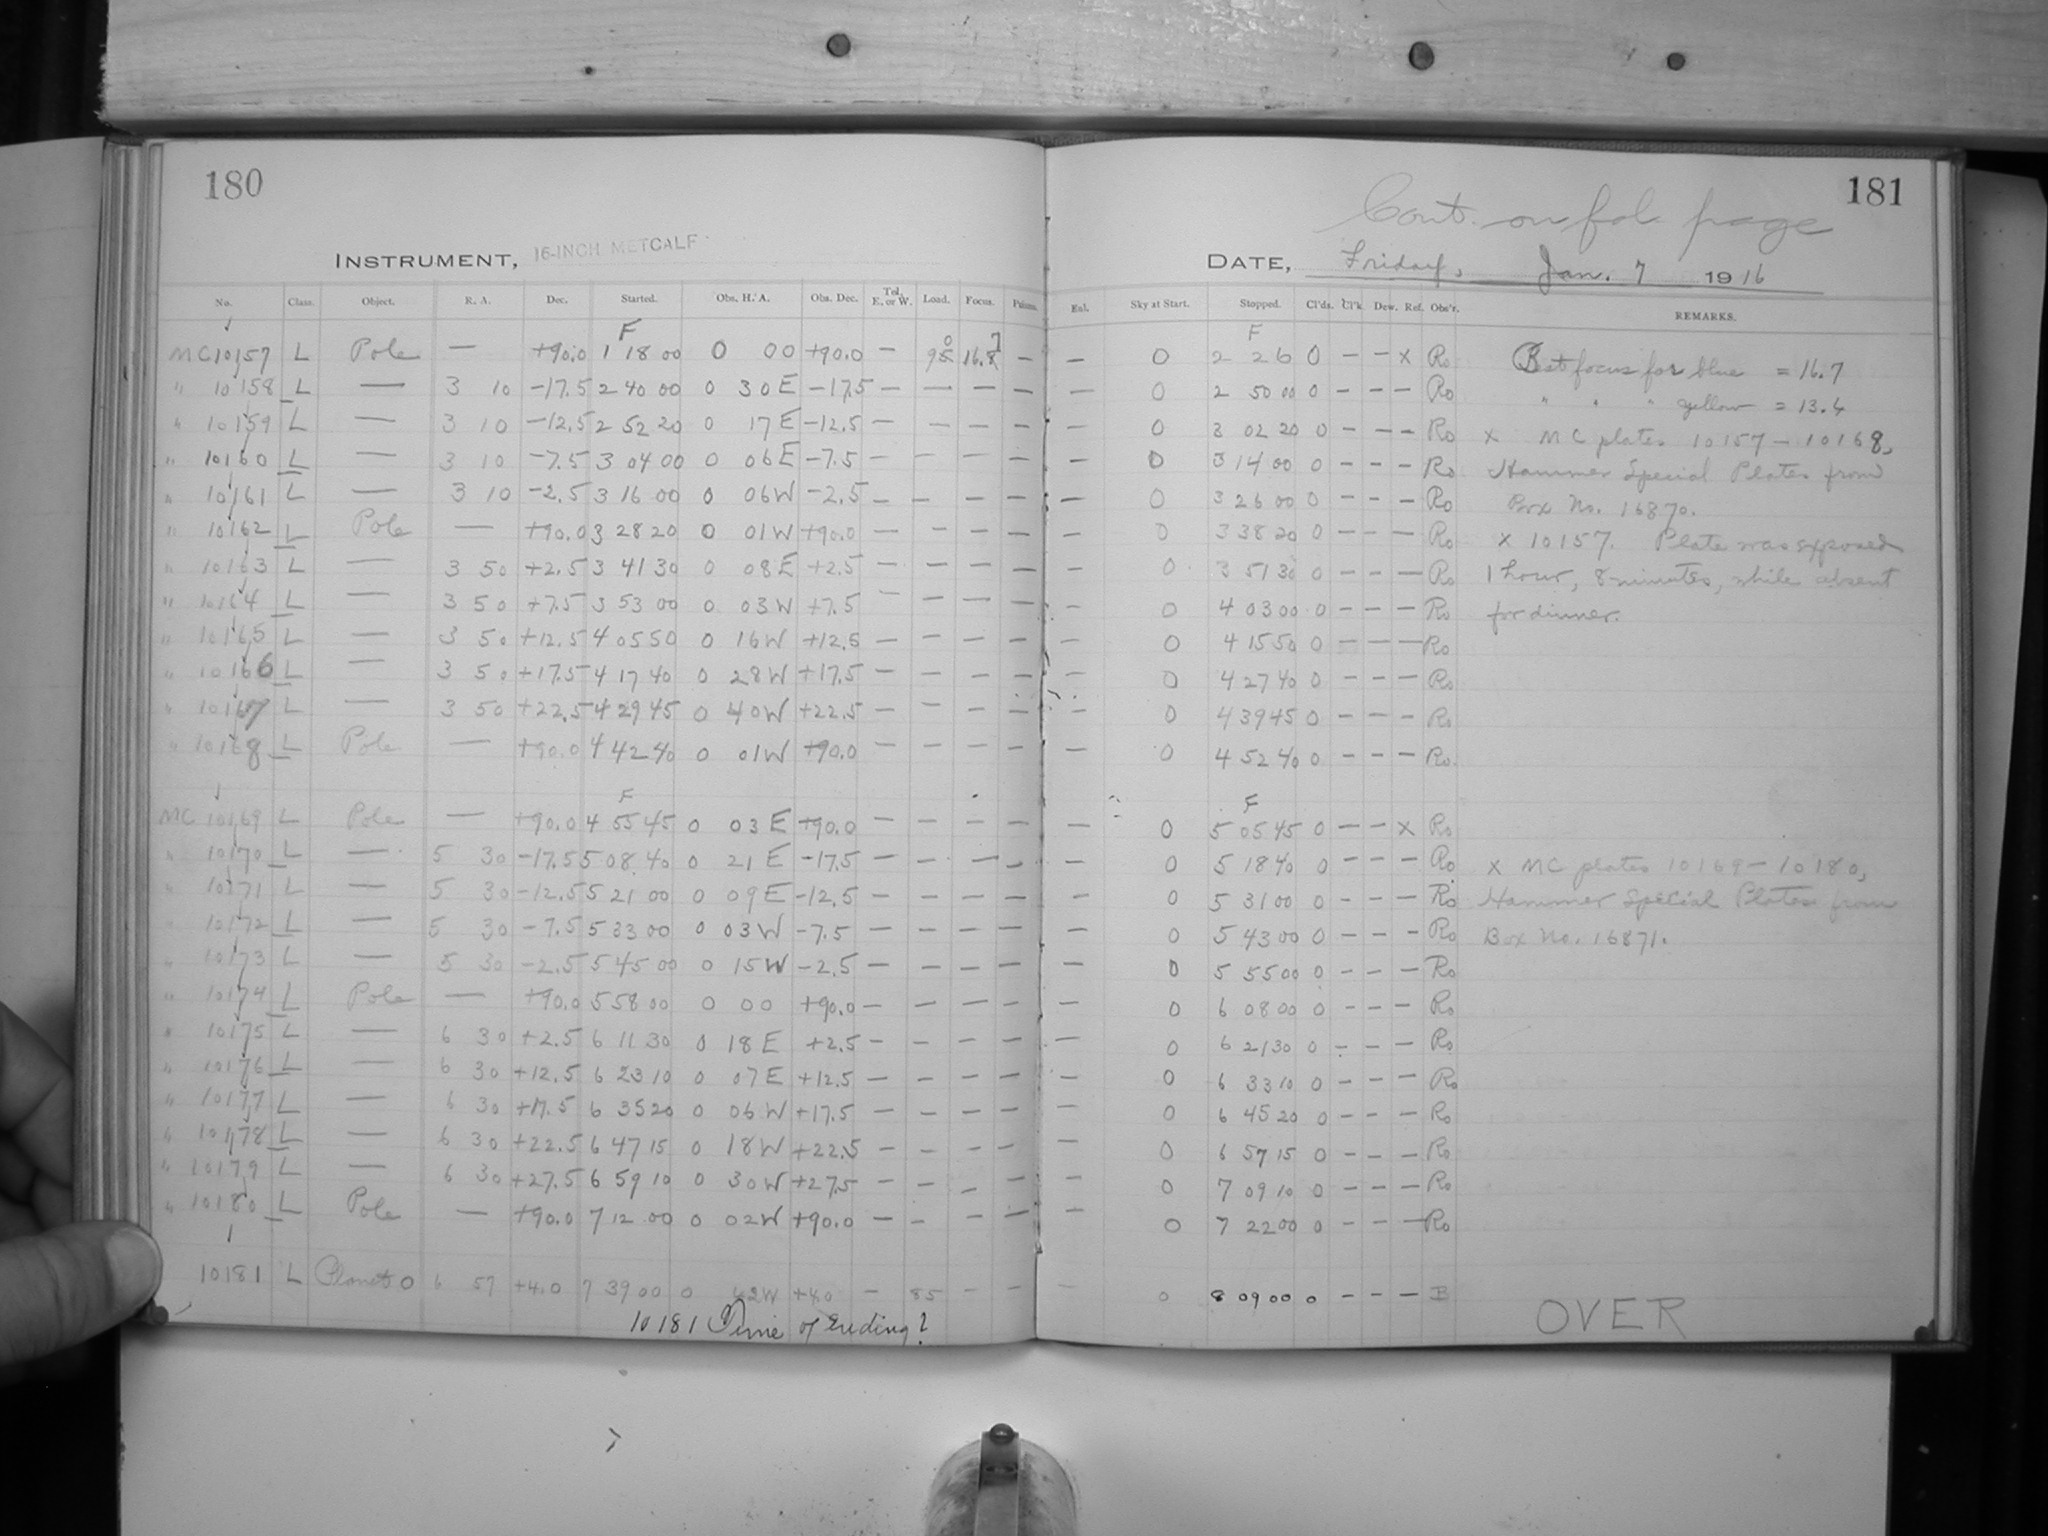 180
INSTRUMENT, 16-INCH METCALF
No. Class. Object. R. A. Dec. Started. Obs. H. A. Obs. Dec. Tel. E. or W. Load. Focus.
F
MC 10157 L Pole — +90.0 1 18 00 0 00 +90.0 — 16.7 —
" 10158 L — 3 10 -17.5 2 40 00 0 30 E -17.5 — — — —
" 10159 L — 3 10 -12.5 2 52 20 0 17 E -12.5 — — — —
" 10160 L — 3 10 -7.5 3 04 00 0 06 E -7.5 — — — —
" 10161 L — 3 10 -2.5 3 16 00 0 06 W -2.5 — — — —
" 10162 L Pole — +90.0 3 28 20 0 01 W +90.0 — — — —
" 10163 L — 3 50 +2.5 3 41 30 0 08 E +2.5 — — — —
" 10164 L — 3 50 +7.5 3 53 00 0 03 W +7.5 — — — —
" 10165 L — 3 50 +12.5 4 05 50 0 16 W +12.5 — — — —
" 10166 L — 3 50 +17.5 4 17 40 0 28 W +17.5 — — — —
" 10167 L — 3 50 +22.5 4 29 45 0 40 W +22.5 — — — —
" 10168 L Pole — +90.0 4 42 40 0 01 W +90.0 — — — —
F
MC 10169 L Pole — +90.0 4 55 45 0 03 E +90.0 — — — —
" 10170 L — 5 30 -17.5 5 08 40 0 21 E -17.5 — — — —
" 10171 L — 5 30 -12.5 5 21 00 0 09 E -12.5 — — — —
" 10172 L — 5 30 -7.5 5 33 00 0 03 W -7.5 — — — —
" 10173 L — 5 30 -2.5 5 45 00 0 15 W -2.5 — — — —
" 10174 L Pole — +90.0 5 58 00 0 00 +90.0 — — — —
" 10175 L — 6 30 +2.5 6 11 30 0 18 E +2.5 — — — —
" 10176 L — 6 30 +12.5 6 23 10 0 07 E +12.5 — — — —
" 10177 L — 6 30 +17.5 6 35 20 0 06 W +17.5 — — — —
" 10178 L — 6 30 +22.5 6 47 15 0 18 W +22.5 — — — —
" 10179 L — 6 30 +27.5 6 59 10 0 30 W +27.5 — — — —
" 10180 L Pole — +90.0 7 12 00 0 02 W +90.0 — — — —
10181 L Planet O 6 57 +4.0 7 39 00 0 42 W +4.0 — 85 — —
10181 Time of Ending?
181
Cont. on fol. page
DATE, Friday, Jan. 7 1916
Enl. Sky at Start. Stopped. Cl'ds. Cl'k. Dew. Ref. Obs'r. REMARKS.
F
— 0 2 26 0 — — x Ro Best focus for blue = 16.7
— 0 2 50 00 0 — — — Ro " " " yellow = 13.4
— 0 3 02 20 0 — — — Ro x MC plates 10157 — 10168,
— 0 3 14 00 0 — — — Ro Hammer Special Plates from
— 0 3 26 00 0 — — — Ro Box No. 16870.
— 0 3 38 20 0 — — — Ro x 10157. Plate was exposed
— 0 3 51 30 0 — — — Ro 1 hour, 8 minutes, while absent
— 0 4 03 00 0 — — — Ro for dinner.
— 0 4 15 50 0 — — — Ro
— 0 4 27 40 0 — — — Ro
— 0 4 39 45 0 — — — Ro
— 0 4 52 40 0 — — — Ro
F
— 0 5 05 45 0 — — x Ro
— 0 5 18 40 0 — — — Ro x MC plates 10169 — 10180,
— 0 5 31 00 0 — — — Ro Hammer Special Plates from
— 0 5 43 00 0 — — — Ro Box No. 16871.
— 0 5 55 00 0 — — — Ro
— 0 6 08 00 0 — — — Ro
— 0 6 21 30 0 — — — Ro
— 0 6 33 10 0 — — — Ro
— 0 6 45 20 0 — — — Ro
— 0 6 57 15 0 — — — Ro
— 0 7 09 10 0 — — — Ro
— 0 7 22 00 0 — — — Ro
— 0 8 09 00 0 — — — B
OVER